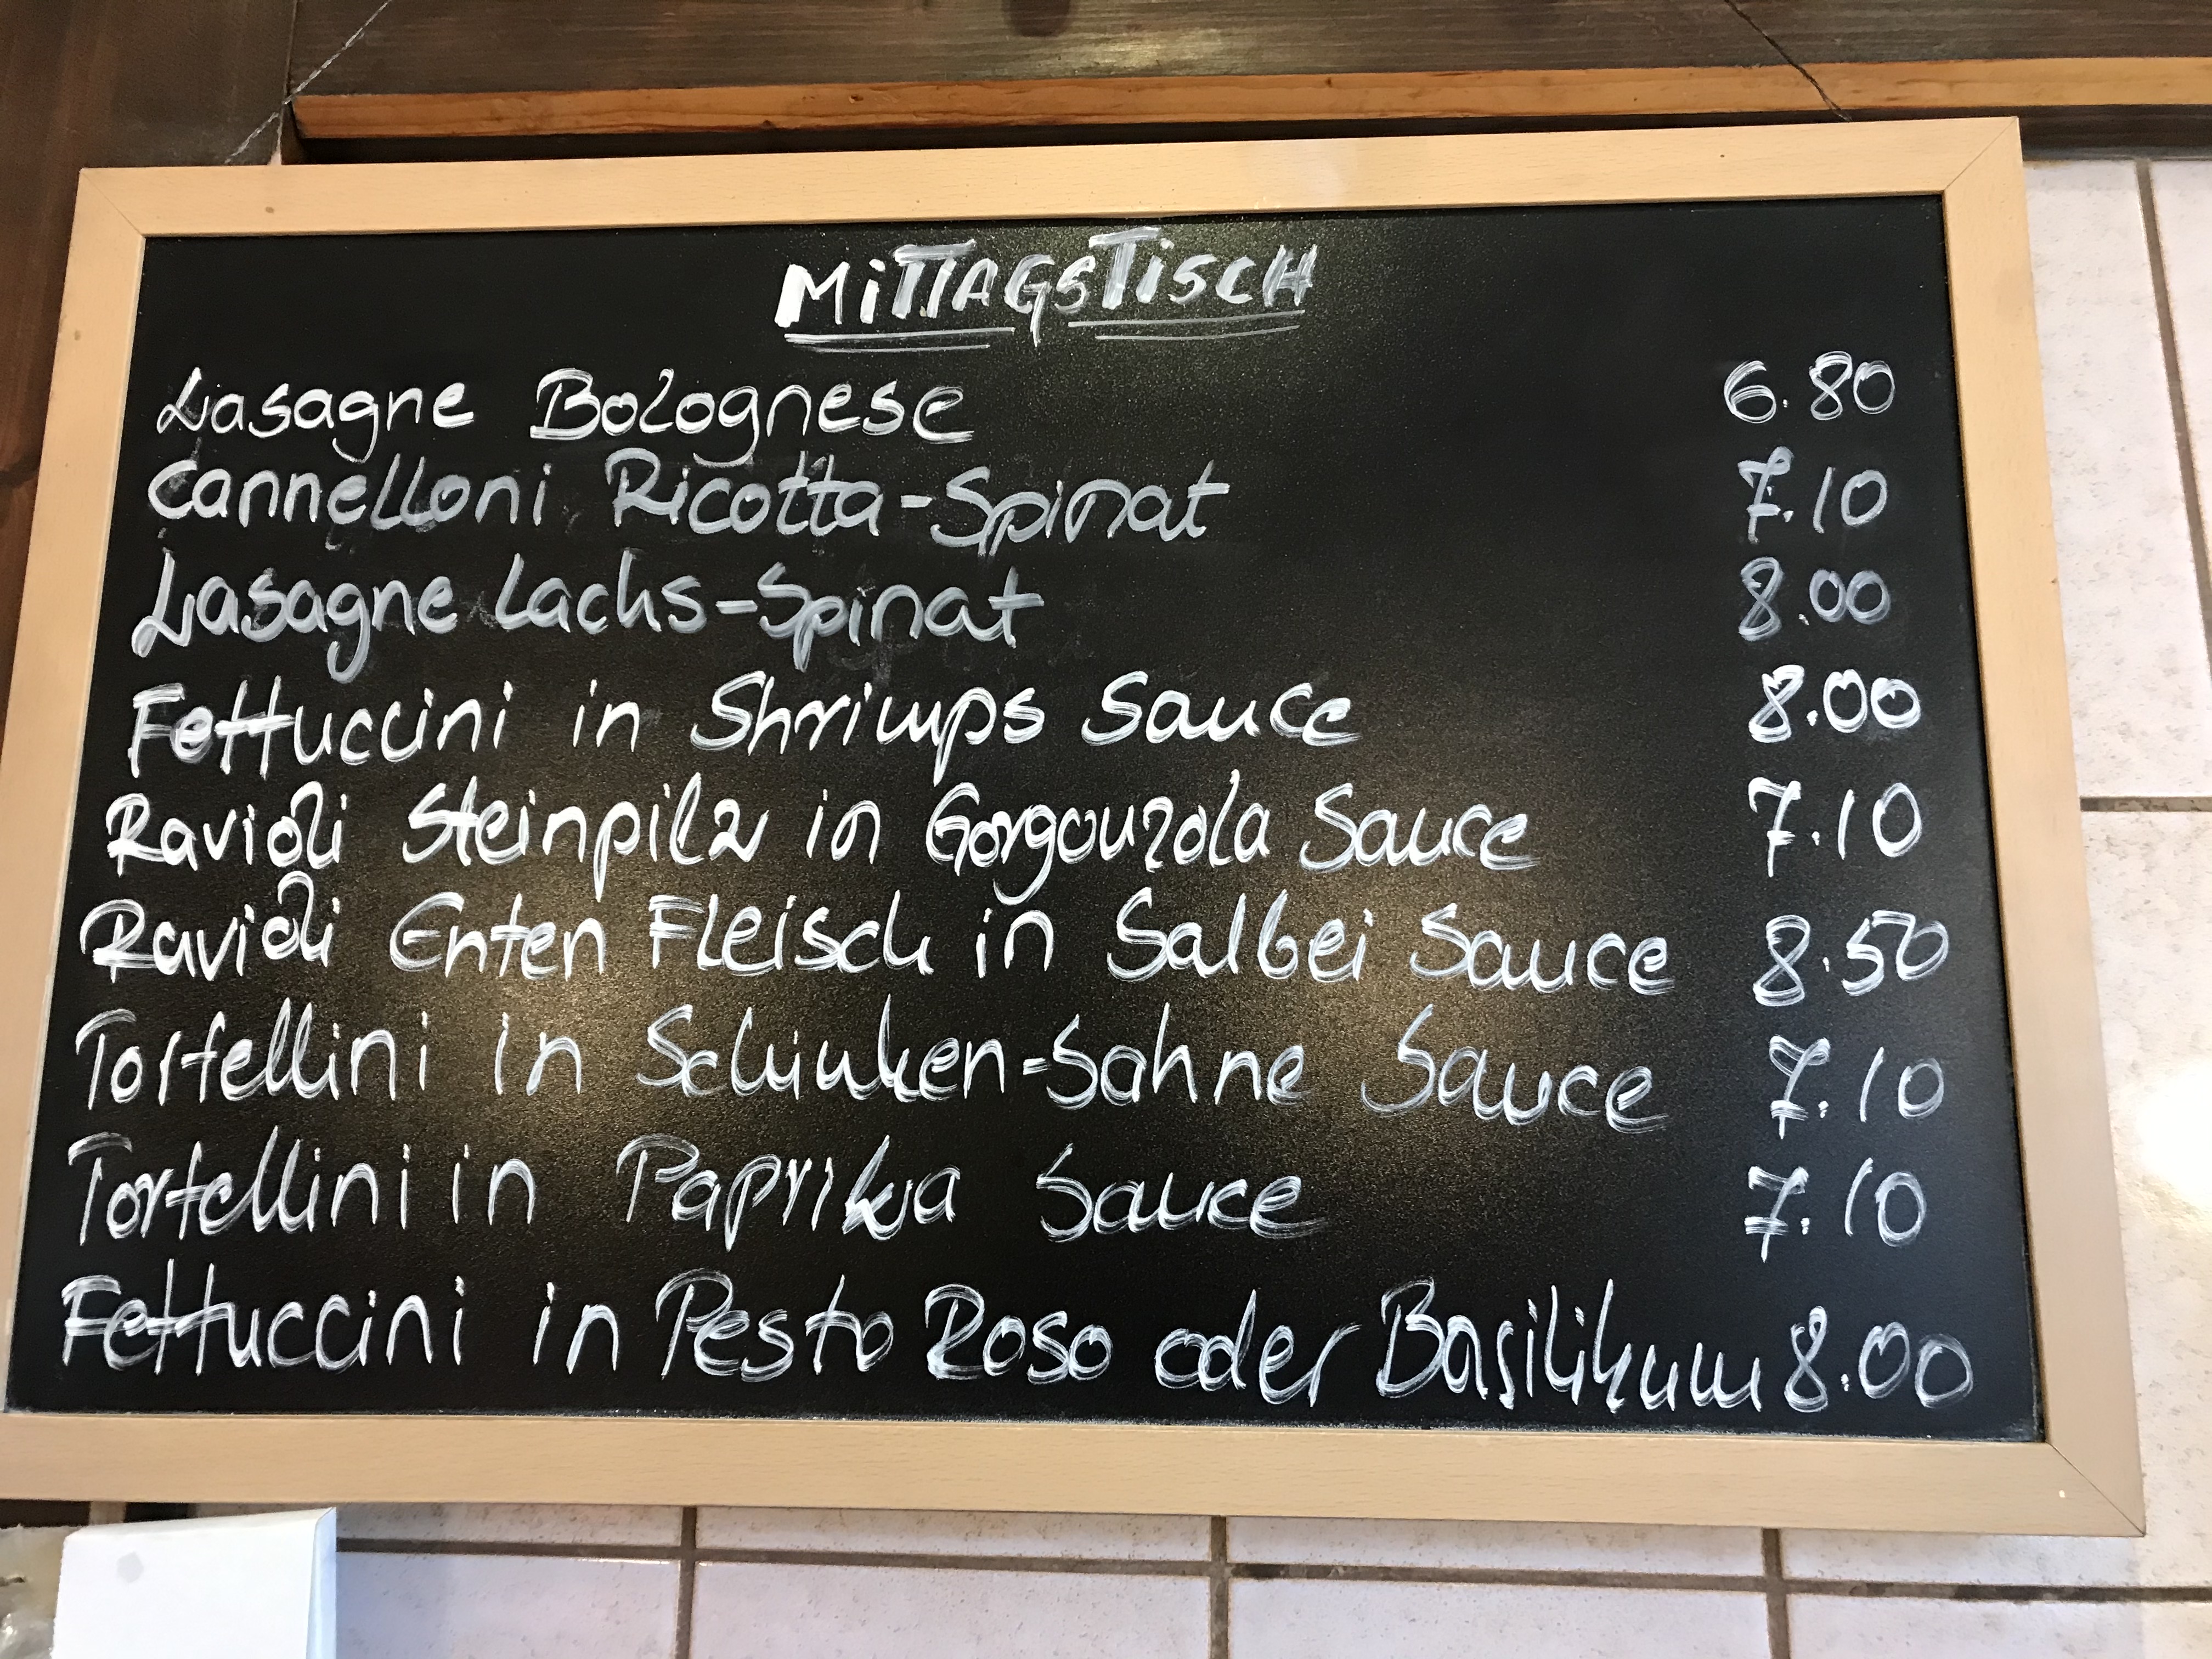 MiTTAGSTiSCH
Lasagne Bolognese 6.80
Cannelloni Ricotta-Spinat 7.10
Lasagne Lachs-Spinat 8.00
Fettuccini in Shrimps Sauce 8.00
Ravioli Steinpilz in Gorgonzola Sauce 7.10
Ravioli Enten Fleisch in Salbei Sauce 8.50
Tortellini in Schinken-Sahne Sauce 7.10
Tortellini in Paprika Sauce 7.10
Fettuccini in Pesto Roso oder Basilikum 8.00